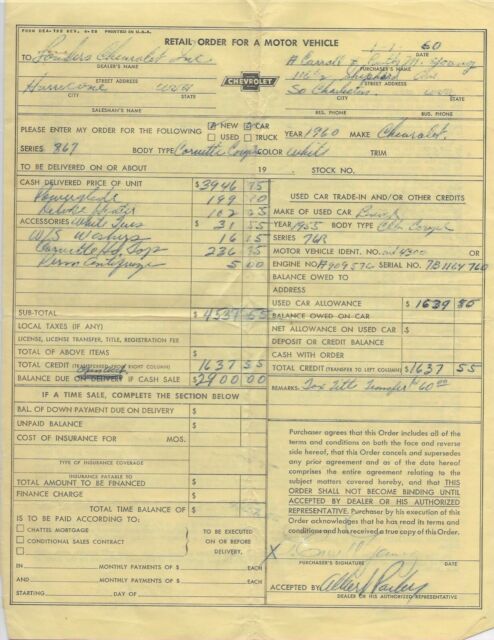 FORM DEA-TRS REV. 4-58 PRINTED IN U.S.A.
RETAIL ORDER FOR A MOTOR VEHICLE
TO Chevrolet Inc
DEALER'S NAME
Hurricane WVA
STREET ADDRESS
CITY STATE
SALESMAN'S NAME
CHEVROLET
60
DATE
A Carroll &
PURCHASER'S NAME
STREET ADDRESS
So Charleston
CITY STATE
RES. PHONE BUS. PHONE
PLEASE ENTER MY ORDER FOR THE FOLLOWING NEW CAR USED TRUCK YEAR 1960 MAKE Chevrolet.
SERIES 867 BODY TYPE Corvette COLOR White TRIM
TO BE DELIVERED ON OR ABOUT 19 STOCK NO.
CASH DELIVERED PRICE OF UNIT $3946 75
Powerglide 199 10
Deluxe Heater 102 25
ACCESSORIES White Tires 31 55
W/S Washers 16 15
236 75
5 00
SUB-TOTAL $4537 55
LOCAL TAXES (IF ANY)
LICENSE, LICENSE TRANSFER, TITLE, REGISTRATION FEE
TOTAL OF ABOVE ITEMS
TOTAL CREDIT (TRANSFERRED FROM RIGHT COLUMN) 1637 55
BALANCE DUE ON DELIVERY IF CASH SALE $2900 00
IF A TIME SALE, COMPLETE THE SECTION BELOW
BAL. OF DOWN PAYMENT DUE ON DELIVERY $
UNPAID BALANCE $
COST OF INSURANCE FOR MOS.
TYPE OF INSURANCE COVERAGE
INSURANCE PAYABLE TO
TOTAL AMOUNT TO BE FINANCED $
FINANCE CHARGE $
TOTAL TIME BALANCE OF $
IS TO BE PAID ACCORDING TO:
CHATTEL MORTGAGE
CONDITIONAL SALES CONTRACT
TO BE EXECUTED ON OR BEFORE DELIVERY.
IN MONTHLY PAYMENTS OF $
AND MONTHLY PAYMENTS OF $
STARTING DAY OF
USED CAR TRADE-IN AND/OR OTHER CREDITS
MAKE OF USED CAR Buick
YEAR 1955 BODY TYPE
SERIES 76R
MOTOR VEHICLE IDENT. NO.
ENGINE NO. SERIAL NO. 7B1164760
BALANCE OWED TO
ADDRESS
USED CAR ALLOWANCE $
BALANCE OWED ON CAR
NET ALLOWANCE ON USED CAR $
DEPOSIT OR CREDIT BALANCE
CASH WITH ORDER
TOTAL CREDIT (TRANSFER TO LEFT COLUMN) $1637 55
REMARKS: Tax Title Transfer 60 00
Purchaser agrees that this Order includes all of the
terms and conditions on both the face and reverse
side hereof, that this Order cancels and supersedes
any prior agreement and as of the date hereof
comprises the entire agreement relating to the
subject matters covered hereby, and that THIS
ORDER SHALL NOT BECOME BINDING UNTIL
ACCEPTED BY DEALER OR HIS AUTHORIZED
REPRESENTATIVE. Purchaser by his execution of this
Order acknowledges that he has read its terms and
conditions and has received a true copy of this Order.
X
PURCHASER'S SIGNATURE DATE
ACCEPTED BY Albert
DEALER OR HIS AUTHORIZED REPRESENTATIVE